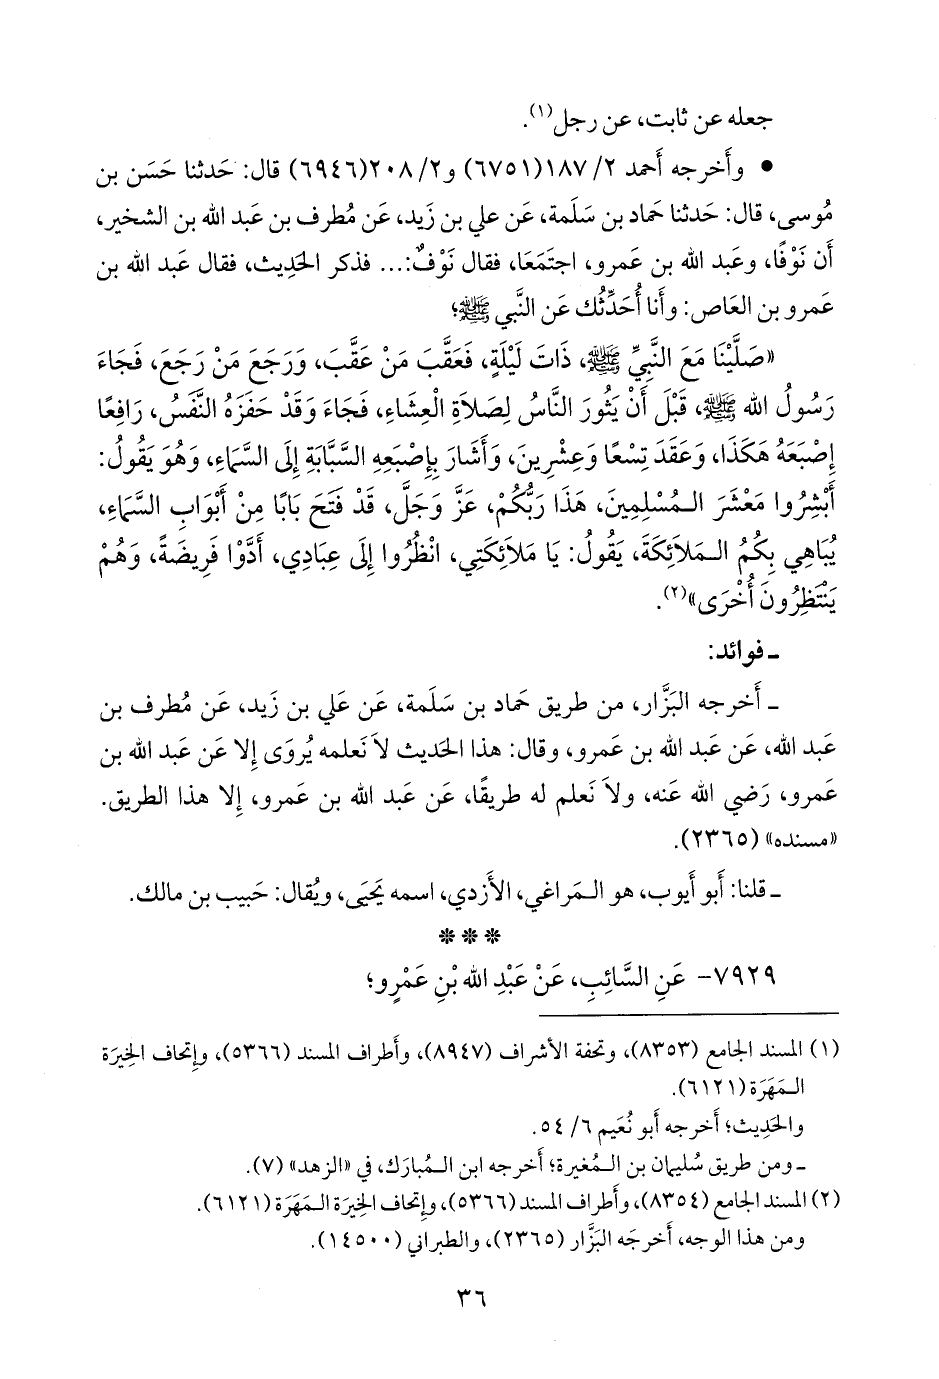 جعله عن ثابت، عن رجل(١).
• وأَخرجه أحمد ٢/ ١٨٧(٦٧٥١) و٢/ ٢٠٨(٦٩٤٦) قال: حَدثنا حَسَن بن
مُوسى، قال: حَدثنا حماد بن سَلَمة، عَن علي بن زَيد، عَن مُطرف بن عَبد الله بن الشخير،
أَن نَوْفًا، وعَبد الله بن عَمرو، اجتمَعَا، فقال نَوْفٌ:... فذكر الحَدِيث، فقال عَبد الله بن
عَمرو بن العَاص: وأَنا أُحَدِّثُك عَن النَّبي ﷺ؛
«صَلَّيْنَا مَعَ النَّبِيِّ ﷺ، ذَاتَ لَيْلَةٍ، فَعَقَّبَ مَنْ عَقَّبَ، وَرَجَعَ مَنْ رَجَعَ، فَجَاءَ
رَسُولُ الله ﷺ، قَبْلَ أَنْ يَثُورَ النَّاسُ لِصَلاَةِ الْعِشَاءِ، فَجَاءَ وَقَدْ حَفَزَهُ النَّفَسُ، رَافِعًا
إِصْبَعَهُ هَكَذَا، وَعَقَدَ تِسْعًا وَعِشْرِينَ، وَأَشَارَ بِإِصْبَعِهِ السَّبَّابَةِ إِلَى السَّمَاءِ، وَهُوَ يَقُولُ:
أَبْشِرُوا مَعْشَرَ الـمُسْلِمِينَ، هَذَا رَبُّكُمْ، عَزَّ وَجَلَّ، قَدْ فَتَحَ بَابًا مِنْ أَبْوَابِ السَّمَاءِ،
يُبَاهِي بِكُمُ الـمَلاَئِكَةَ، يَقُولُ: يَا مَلاَئِكَتِي، انْظُرُوا إِلَى عِبَادِي، أَدَّوْا فَرِيضَةً، وَهُمْ
يَنْتَظِرُونَ أُخْرَى»(٢).
ـ فوائد:
ـ أَخرجه البَزَّار، من طريق حماد بن سَلَمة، عَن عَلي بن زَيد، عَن مُطرف بن
عَبد الله، عَن عَبد الله بن عَمرو، وقال: هذا الحَديث لاَ نَعلمه يُروَى إِلا عَن عَبد الله بن
عَمرو، رَضي الله عَنه، ولاَ نَعلم له طريقًا، عَن عَبد الله بن عَمرو، إِلا هذا الطريق.
«مسنده» (٢٣٦٥).
ـ قلنا: أَبو أَيوب، هو الـمَراغي، الأَزدي، اسمه يَحيَى، ويُقال: حَبيب بن مالك.
* * *
٧٩٢٩- عَنِ السَّائِبِ، عَنْ عَبْدِ الله بْنِ عَمْرٍو؛
(١) المسند الجامع (٨٣٥٣)، وتحفة الأشراف (٨٩٤٧)، وأَطراف المسند (٥٣٦٦)، وإِتحاف الخِيرَة
الـمَهَرَة (٦١٢١).
والحَدِيث؛ أَخرجه أَبو نُعَيم ٦/ ٥٤.
ـ ومن طريق سُليمان بن الـمُغيرة؛ أَخرجه ابن الـمُبارَك، في «الزهد» (٧).
(٢) المسند الجامع (٨٣٥٤)، وأَطراف المسند (٥٣٦٦)، وإِتحاف الخِيرَة الـمَهَرَة (٦١٢١).
ومن هذا الوجه، أَخرجَه البَزَّار (٢٣٦٥)، والطبراني (١٤٥٠٠).
٣٦